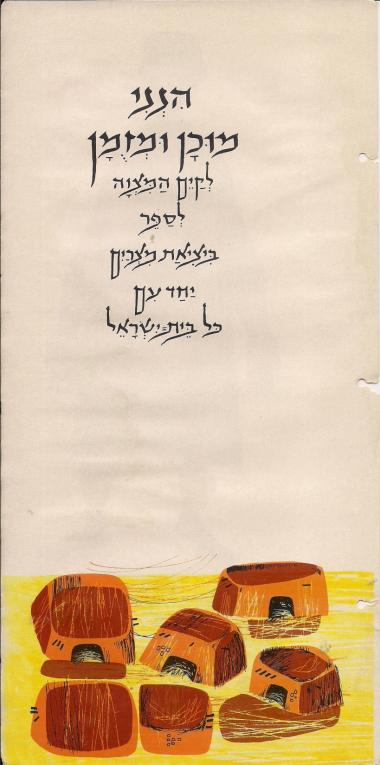 הִנְנִי
מוּכָן וּמְזֻמָּן
לְקַיֵּם הַמִּצְוָה
לְסַפֵּר
בִּיצִיאַת מִצְרַיִם
יַחַד עִם
כָּל בֵּית־יִשְׂרָאֵל